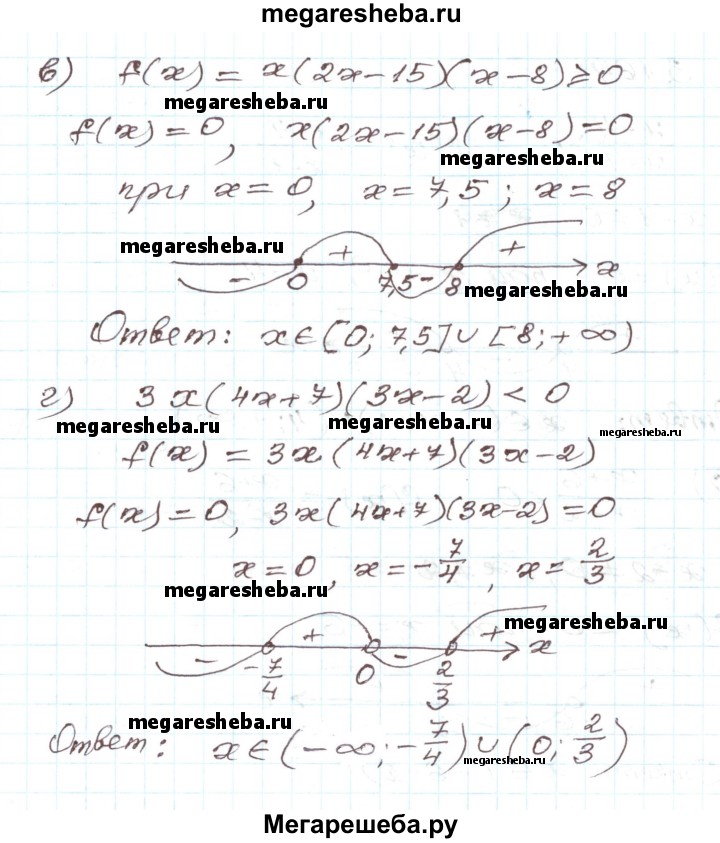 megaresheba.ru
в) f(x) = x(2x-15)(x-8)≥0
megaresheba.ru
f(x)=0, x(2x-15)(x-8)=0
megaresheba.ru
при x=0, x=7,5; x=8
megaresheba.ru
- + - + x
0 7,5 8
megaresheba.ru
Ответ: x∈[0; 7,5]∪[8;+∞)
г) 3x(4x+7)(3x-2)<0
megaresheba.ru
megaresheba.ru
f(x) = 3x(4x+7)(3x-2)
megaresheba.ru
f(x)=0, 3x(4x+7)(3x-2)=0
x=0, x=-7/4, x=2/3
megaresheba.ru
megaresheba.ru
- + - + x
-7/4 0 2/3
megaresheba.ru
Ответ: x∈(-∞;-7/4)∪(0;2/3)
megaresheba.ru
Мегарешеба.ру